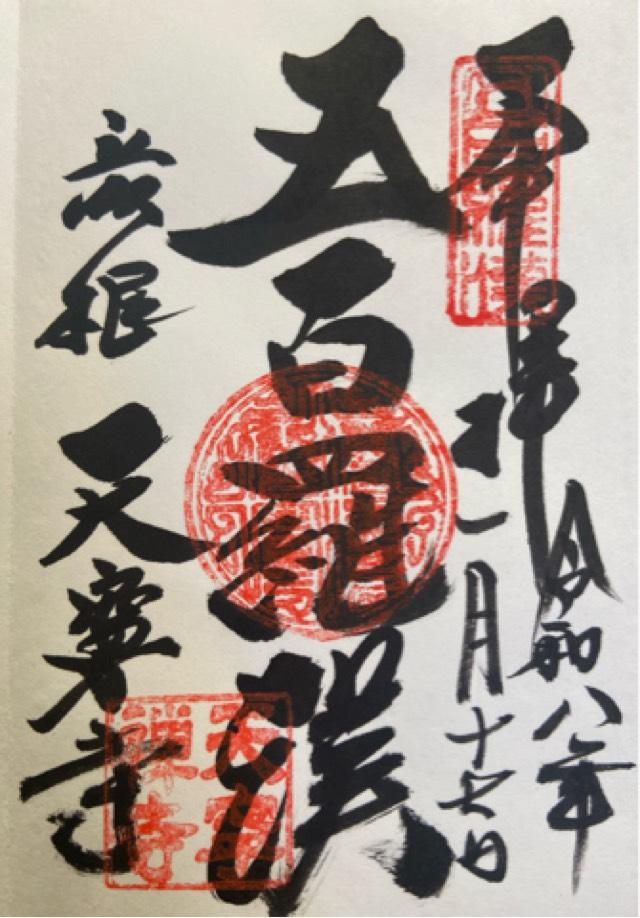 奉拝
令和八年
三月十七日
五百羅漢
彦根
天寧寺
天寧
禪寺